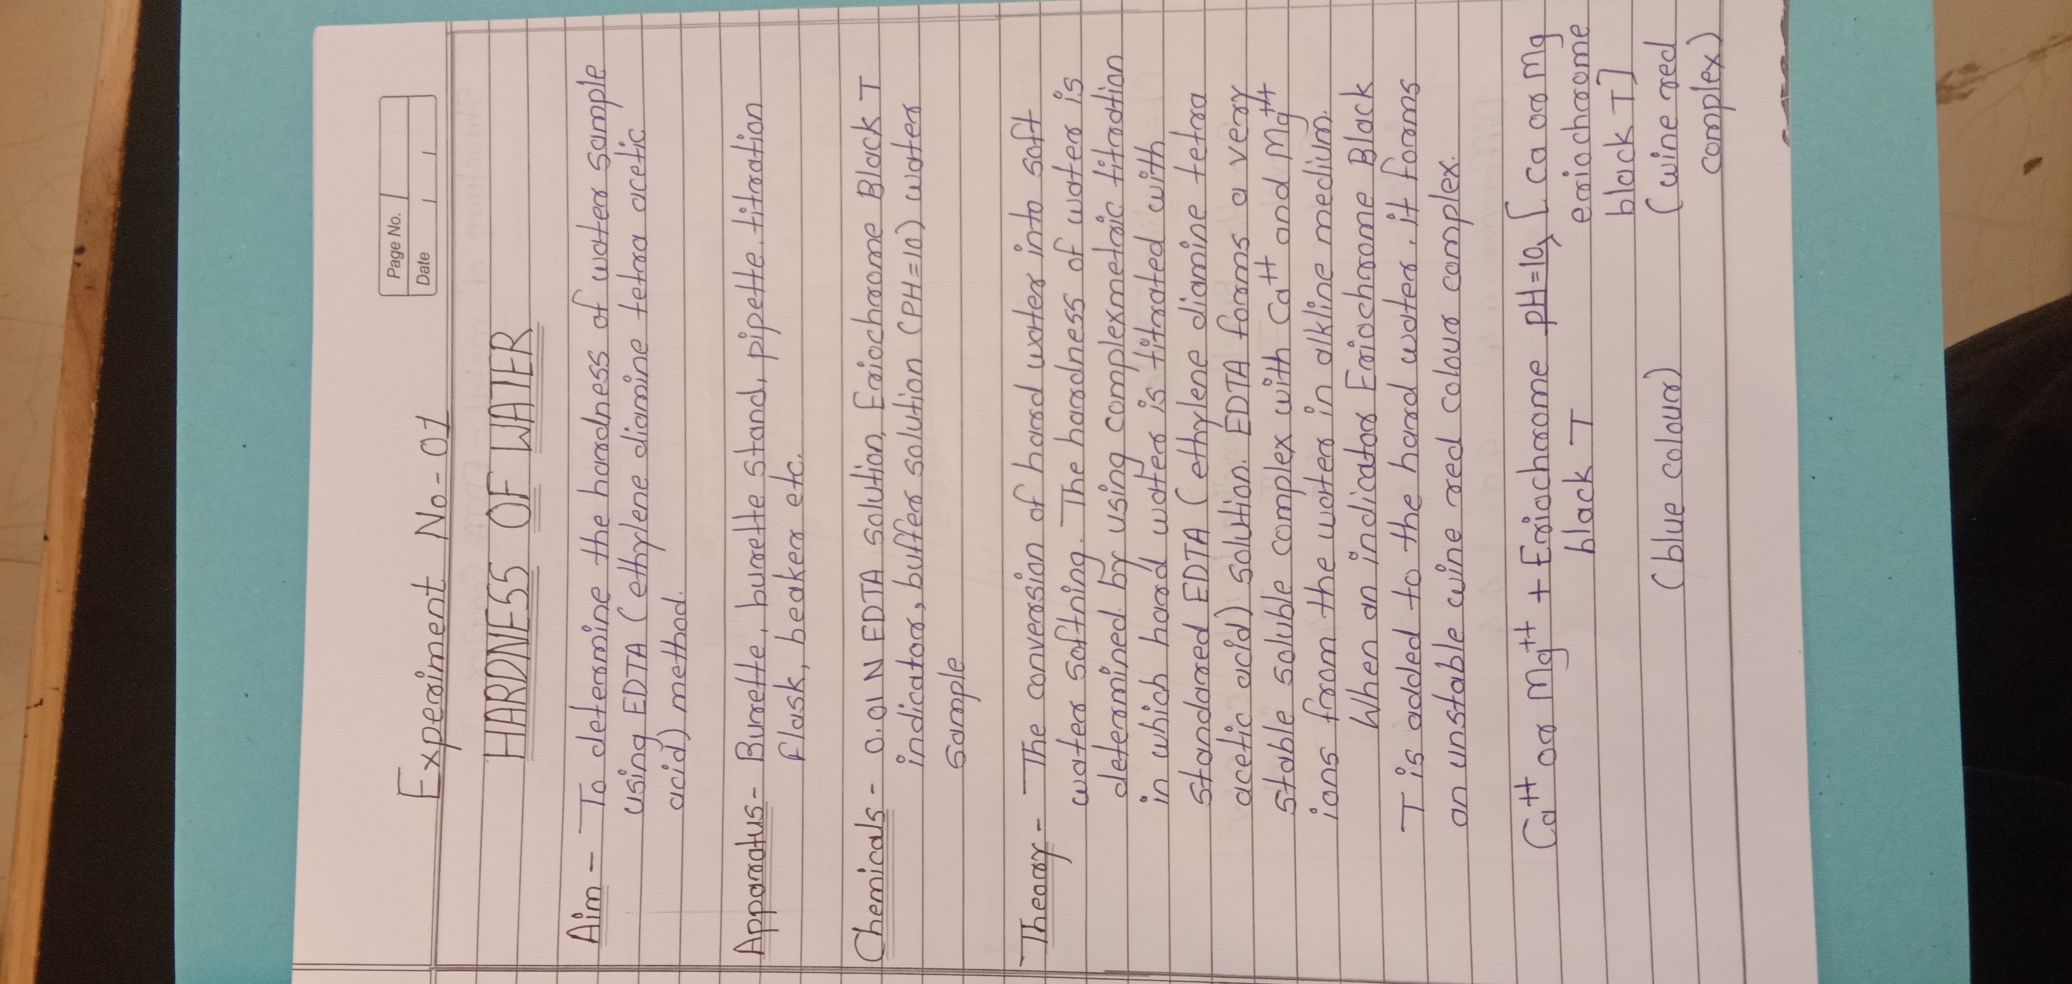 Page No.
Date
Experiment No-01
HARDNESS OF WATER
Aim - To determine the hardness of water sample
using EDTA (ethylene diamine tetra acetic
acid) method.
Apparatus- Burette, burette stand, pipette, titration
flask, beaker etc.
Chemicals- 0.01N EDTA solution, Eriochrome Black T
indicator, buffer solution (PH=10) water
sample
Theory- The conversion of hard water into soft
water softning. The hardness of water is
determined by using complexmetric titration
in which hard water is titrated with
standared EDTA (ethylene diamine tetra
acetic acid) solution. EDTA forms a very
stable soluble complex with Ca++ and Mg++
ions from the water in alkline medium.
When an indicator Eriochrome Black
T is added to the hard water, it forms
an unstable wine red colour complex.
Ca++ or Mg++ + Eriochrome pH=10, [Ca or Mg
black T eriochrome
black T]
(blue colour) (wine red
complex)